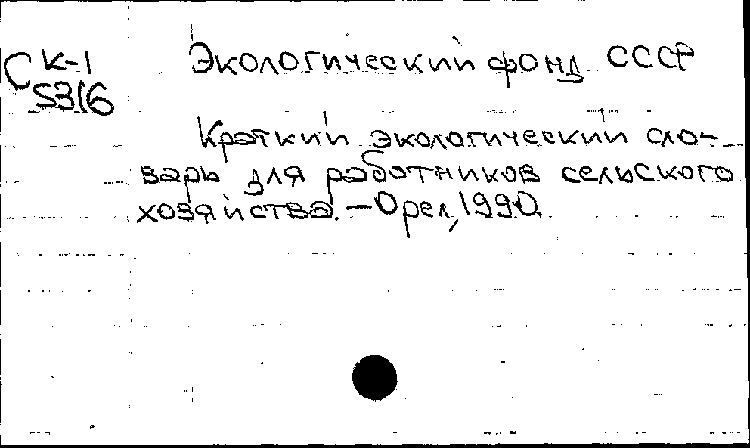 С К-1
5316
Экологический фонд СССР
Краткий экологический сло-
варь для работников сельского
хозяйства. — Орел, 1990.